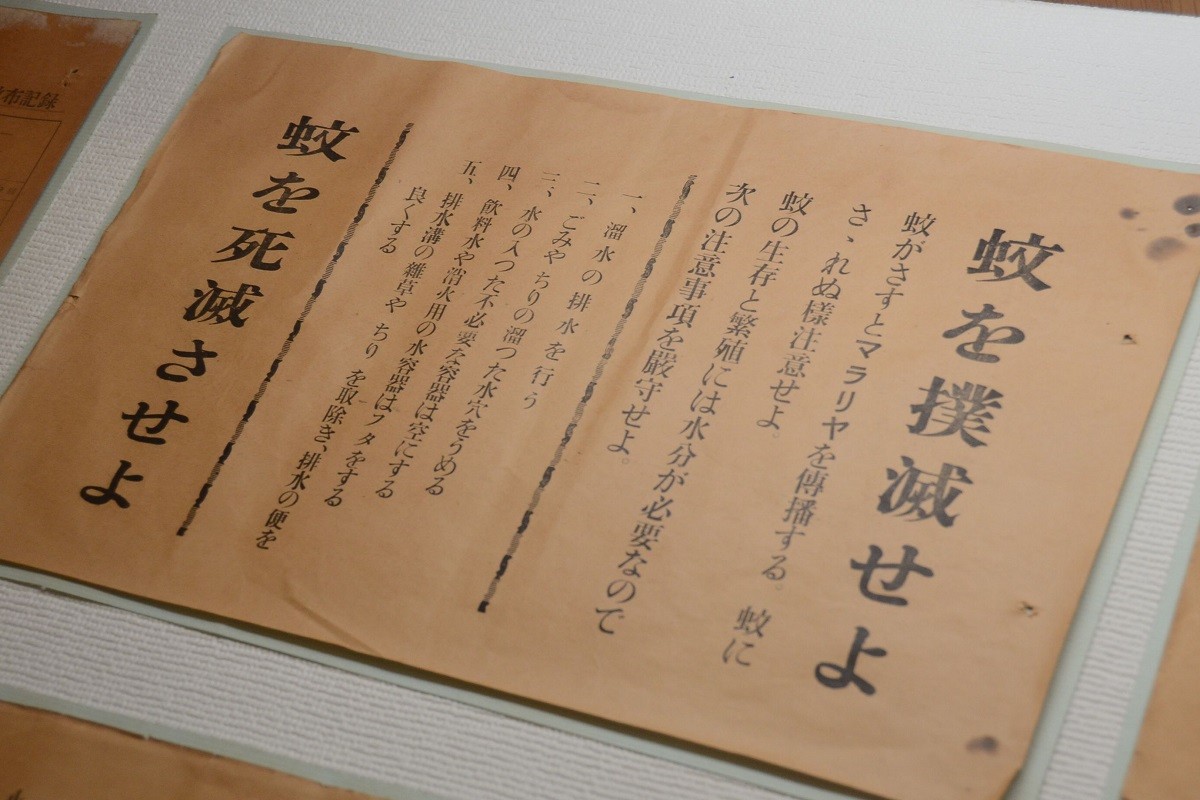 蚊を撲滅せよ
蚊がさすとマラリヤを傳播する。蚊に
さゝれぬ樣注意せよ。
蚊の生存と繁殖には水分が必要なので
次の注意事項を嚴守せよ。
一、溜水の排水を行う
二、ごみやちりの溜つた水穴をうめる
三、水の入つた不必要な容器は空にする
四、飮料水や消火用の水容器はフタをする
五、排水溝の雜草やちりを取除き、排水の便を
良くする
蚊を死滅させよ
布記録